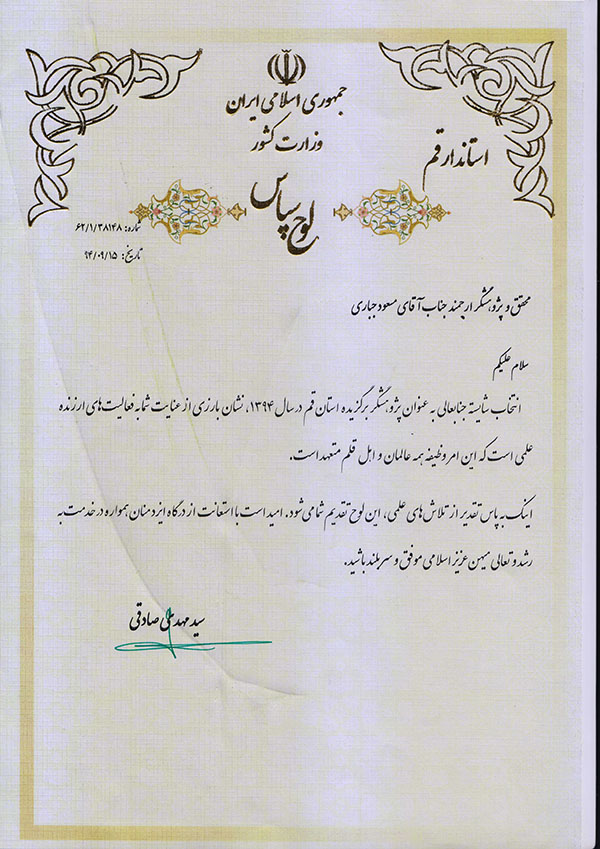 جمهوری اسلامی ایران
وزارت کشور
استاندار قم
لوح سپاس
شماره: ۶۲/۱/۳۸۱۴۸
تاریخ: ۹۴/۰۹/۱۵
محقق و پژوهشگر ارجمند جناب آقای مسعود جباری
سلام علیکم
انتخاب شایسته جنابعالی به عنوان پژوهشگر برگزیده استان قم در سال ۱۳۹۴، نشان بارزی از عنایت شما به فعالیت‌های ارزنده
علمی است که این امر وظیفه همه عالمان و اهل قلم متعهد است.
اینک به پاس تقدیر از تلاش‌های علمی، این لوح تقدیم شما می‌شود. امید است با استعانت از درگاه ایزد منان همواره در خدمت به
رشد و تعالی میهن عزیز اسلامی موفق و سربلند باشید.
سید مهدی صادقی